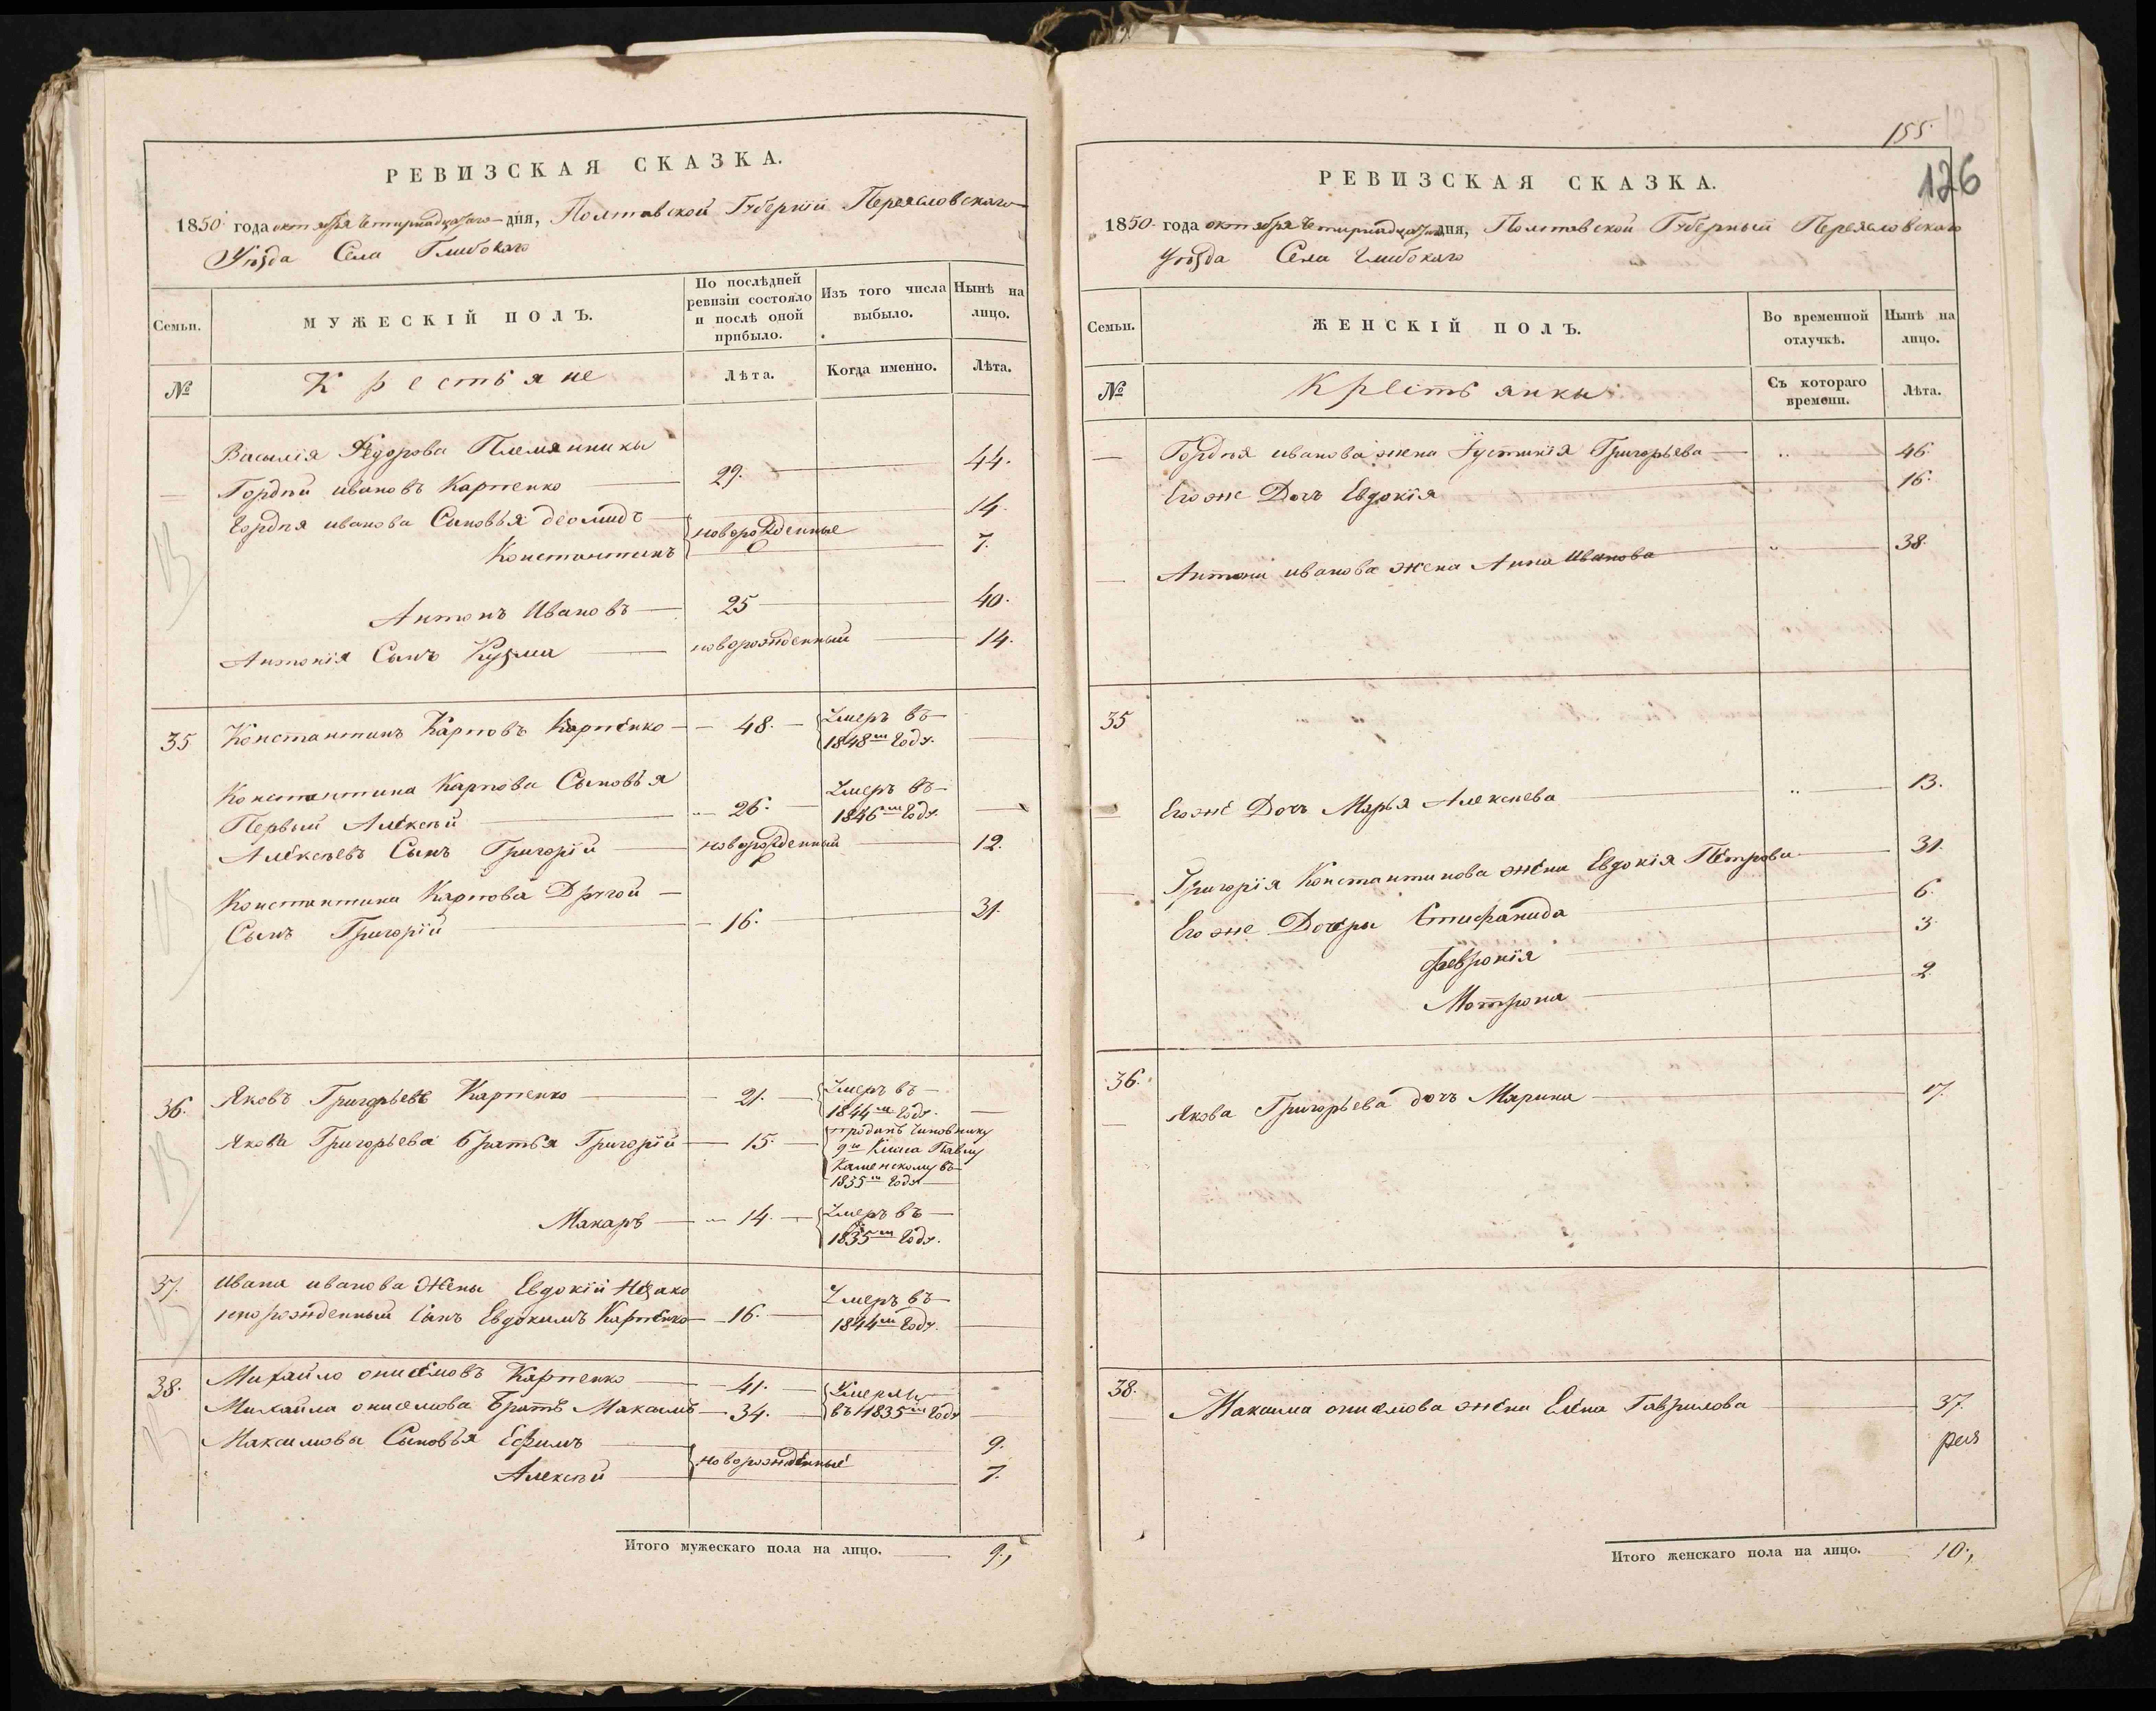 РЕВИЗСКАЯ СКАЗКА.
1850 года октября Четырнадцатаго дня, Полтавской Губерніи Переясловскаго
Уѣзда Села Глибокаго
Семьи.
МУЖЕСКІЙ ПОЛЪ.
По послѣдней ревизіи состояло и послѣ оной прибыло.
Изъ того числа выбыло.
Нынѣ на лицо.
№
Крестьяне
Лѣта.
Когда именно.
Лѣта.
Василія Федорова Племянники
Гордѣй ивановъ Карпенко 29. 44.
Гордѣя иванова Сыновья деомидъ новорожденные 14.
Константинъ 7.
Антонъ Ивановъ 25 40.
Антонія Сынъ Кузма новорожденный 14.
35 Константинъ Карповъ Карпенко 48. Умеръ въ
1848м Году.
Константина Карпова Сыновья
Первый Алексѣй 26. Умеръ въ
1846м Году.
Алексѣевъ Сынъ Григорій новорожденный 12.
Константина Карпова Другой
Сынъ Григорій 16. 31.
36. Яковъ Григорьевъ Карпенко 21. Умеръ въ
1844м Году.
Якова Григорьева Братья Григорій 15. проданъ Чиновнику
9го Класа Павлу
Каменскому въ
1835м Году
Макаръ 14. Умеръ въ
1835м Году.
37. Ивана иванова Жены Евдокіи Незако
норожденный Сынъ Евдокимъ Карпенко 16. Умеръ въ
1844м Году.
38. Михайло онисимовъ Карпенко 41. Умерли
Михайла онисимова Братъ Максимъ 34. въ 1835м Году
Максимовы Сыновья Ефимъ новорожденные 9.
Алексѣй 7.
Итого мужескаго пола на лицо. 9.
155.
126
РЕВИЗСКАЯ СКАЗКА.
1850 года октября Четырнадцатаго дня, Полтавской Губерныи Переясловскаго
Уѣзда Села Глибокаго
Семьи.
ЖЕНСКІЙ ПОЛЪ.
Во временной отлучкѣ.
Нынѣ на лицо.
№
Крестьянки
Съ котораго времени.
Лѣта.
Гордѣя иванова жена Іустинія Григорьева 46.
Его же Дочь Евдокія 16.
Антона иванова жена Анна Иванова 38.
35
Его же Дочь Марья Алексѣева 13.
Григорія Константинова жена Евдокія Петрова 31.
Его же Дочери Стефанида 6.
Февронія 3.
Мотрона 2.
36.
Якова Григорьева дочь Марина 17.
38. Максима онисимова жена Елена Гаврилова 37.
Итого женскаго пола на лицо. 10.